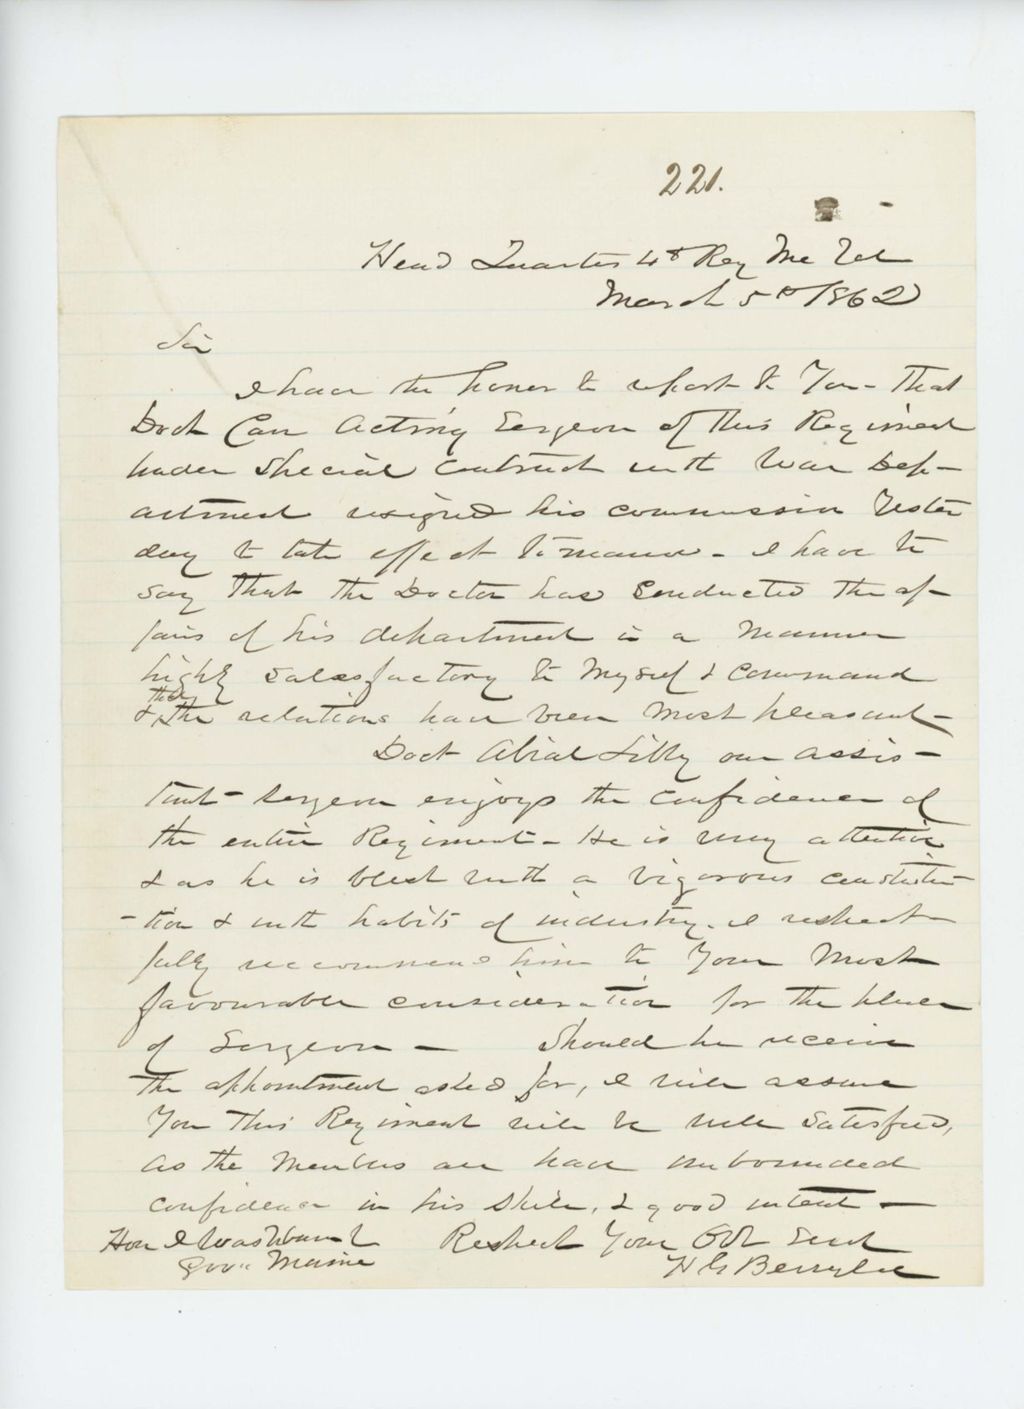 221.
Head Quarters 4th Reg Me Vol
March 5th 1862
Sir
I have the honor to report to You - That
Doct Carr Acting Sergeon of This Regiment
under Special Contract with War Dep-
artment resigned his commission Yester
day to take effect tomorrow - I have to
say That the Doctor has Conducted The af-
fairs of his department in a manner
highly satisfactory to Myself & Command
& that The relations have been Most pleasant -
Doct Abial Libby our assis-
tant - sergeon enjoys the confidence of
the entire Regiment - He is very attentive
& as he is blest with a vigorous constitu
-tion & with habits of industry. I respect
fully reccommend him to Your Most
favourable consideration for the place
of Sergeon - Should he receive
the appointment asked for, I will assure
You This Regiment will be well Satisfied,
as the Members all have unbounded
confidence in his skill, & good intent -
Hon I Washburn Jr Respect Your Obt Servt
Govr Maine H G Berry Col